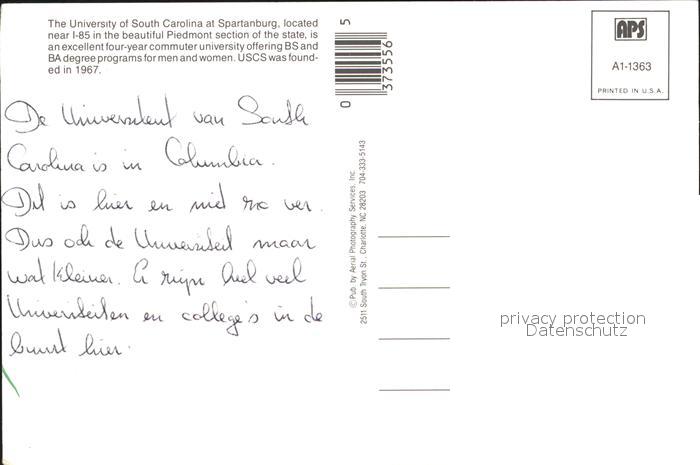 The University of South Carolina at Spartanburg, located
near I-85 in the beautiful Piedmont section of the state, is
an excellent four-year commuter university offering BS and
BA degree programs for men and women. USCS was found-
ed in 1967.
De Universiteit van South
Carolina is in Columbia.
Dit is hier en niet zo ver.
Dus ook de Universiteit maar
wat kleiner. Er zijn heel veel
Universiteiten en college's in de
buurt hier.
5
373556
0
© Pub. by Aerial Photography Services, Inc.
2511 South Tryon St., Charlotte, NC 28203 704-333-5143
APS
A1-1363
PRINTED IN U.S.A.
privacy protection
Datenschutz